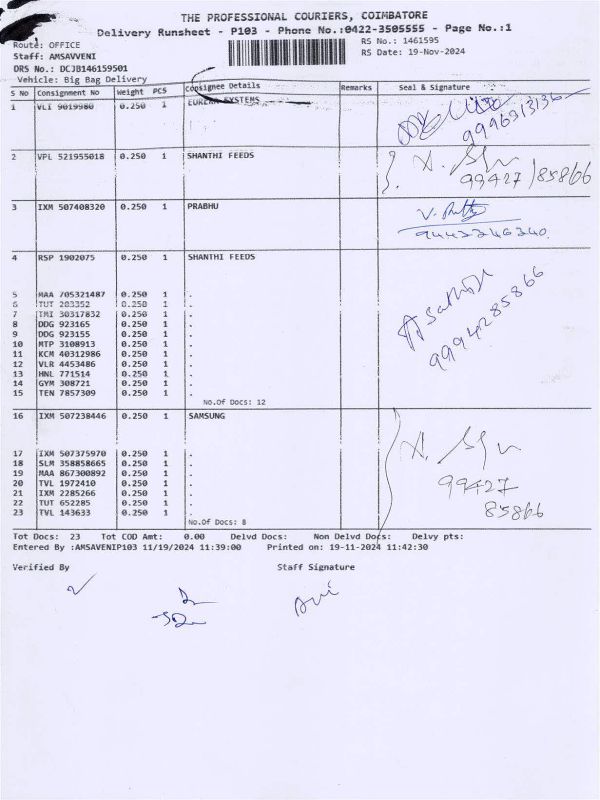 THE PROFESSIONAL COURIERS, COIMBATORE
Delivery Runsheet - P103 - Phone No.:0422-3505555 - Page No.:1
Route: OFFICE RS No.: 1461595
Staff: AMSAVVENI RS Date: 19-Nov-2024
DRS No.: DCJB146159501
Vehicle: Big Bag Delivery
S No Consignment No Weight PCS Consignee Details Remarks Seal & Signature
1 VLI 9019980 0.250 1 EUREKA SYSTEMS
9996313136
2 VPL 521955018 0.250 1 SHANTHI FEEDS
99427/85866
3 IXM 507408320 0.250 1 PRABHU
9443346340
4 RSP 1902075 0.250 1 SHANTHI FEEDS
5 MAA 705321487 0.250 1 .
6 TUT 203352 0.250 1 .
7 TMI 30317832 0.250 1 .
8 DDG 923165 0.250 1 .
9 DDG 923155 0.250 1 .
10 MTP 3108913 0.250 1 .
11 KCM 40312986 0.250 1 .
12 VLR 4453486 0.250 1 .
13 HNL 771514 0.250 1 .
14 GYM 308721 0.250 1 .
15 TEN 7857309 0.250 1 .
No.Of Docs: 12
9994285866
16 IXM 507238446 0.250 1 SAMSUNG
17 IXM 507375970 0.250 1 .
18 SLM 358858665 0.250 1 .
19 MAA 867300892 0.250 1 .
20 TVL 1972410 0.250 1 .
21 IXM 2285266 0.250 1 .
22 TUT 652285 0.250 1 .
23 TVL 143633 0.250 1 .
No.Of Docs: 8
99427
85866
Tot Docs: 23 Tot COD Amt: 0.00 Delvd Docs: Non Delvd Docs: Delvy pts:
Entered By :AMSAVENIP103 11/19/2024 11:39:00 Printed on: 19-11-2024 11:42:30
Verified By Staff Signature